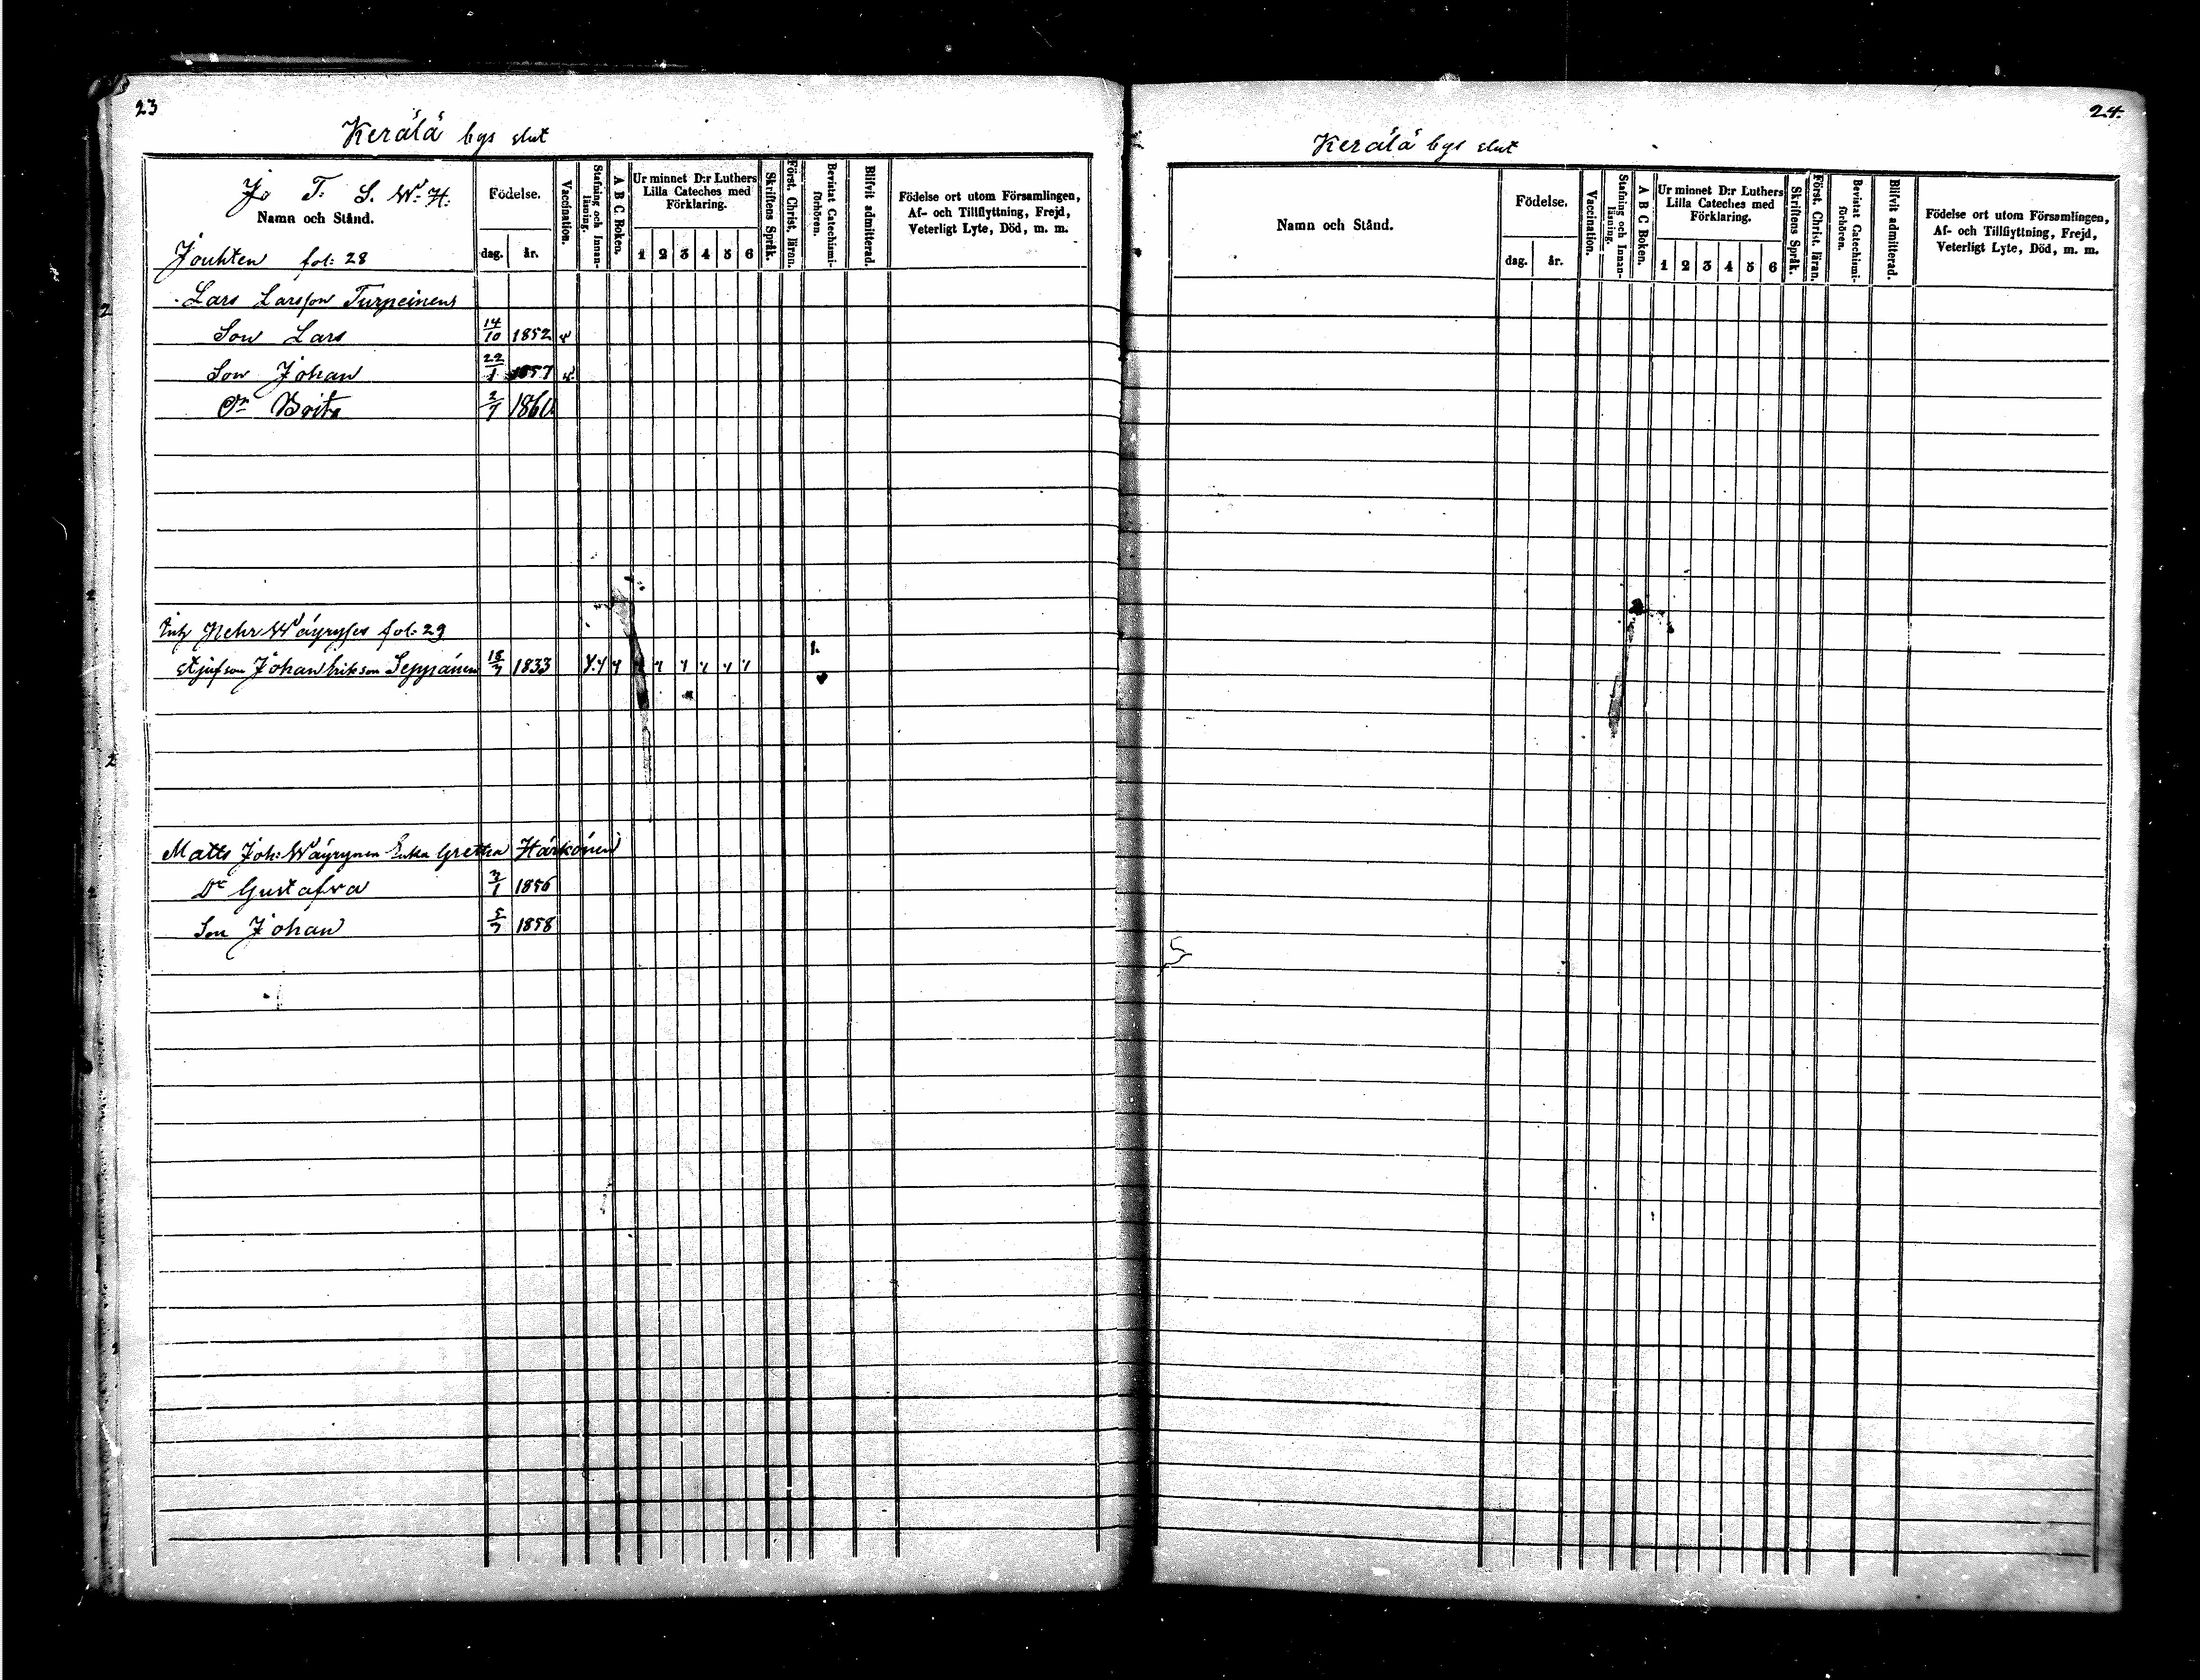 23
Kerälä bys slut
Jo T. S. W. H.
Namn och Stånd.
Födelse.
dag. år.
Vaccination.
Stafning och Innanläsning.
A B C Boken.
Ur minnet D:r Luthers Lilla Cateches med Förklaring.
1 2 3 4 5 6
Skriftens Språk.
Först. Christ. läran.
Bevistat Catechismiförhören.
Blifvit admitterad.
Födelse ort utom Församlingen,
Af- och Tillflyttning, Frejd,
Veterligt Lyte, Död, m. m.
Jouhten fol: 28
Lars Larsson Turpeinens
Son Lars 14/10 1852
Son Johan 22/1 1857
Dr Brita 2/7
fol: 29
Johan Erikson Seppänen 18/7 1833
Matts Joh: Wäyrynen Gretha Härkönen
Dr Gustafva 3/1 1856
Son Johan 5/7 1858
24.
Kerälä bys slut
Namn och Stånd.
Födelse.
dag. år.
Vaccination.
Stafning och Innanläsning.
A B C Boken.
Ur minnet D:r Luthers Lilla Cateches med Förklaring.
1 2 3 4 5 6
Skriftens Språk.
Först. Christ. läran.
Bevistat Catechismiförhören.
Blifvit admitterad.
Födelse ort utom Församlingen,
Af- och Tillflyttning, Frejd,
Veterligt Lyte, Död, m. m.